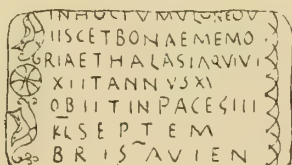 IN HOC TVMVLO REQV
IISCET BONAE MEMO
RIAE THALASIA QVIVI
XIIT ANNVS XI
OBIIT IN PACE SIIII
KL SEPTEM
BRIS AVIEN